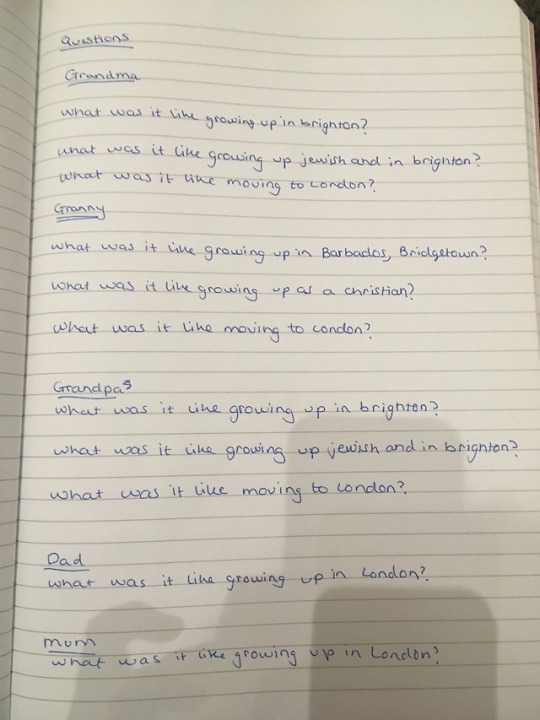 Questions
Grandma
What was it like growing up in brighton?
what was it like growing up jewish and in brighton?
What was it like moving to London?
Granny
what was it like growing up in Barbados, Bridgetown?
what was it like growing up as a christian?
What was it like moving to London?
Grandpas
what was it like growing up in brighton?
what was it like growing up jewish and in brighton?
what was it like moving to London?
Dad
what was it like growing up in London?
mum
what was it like growing up in London?